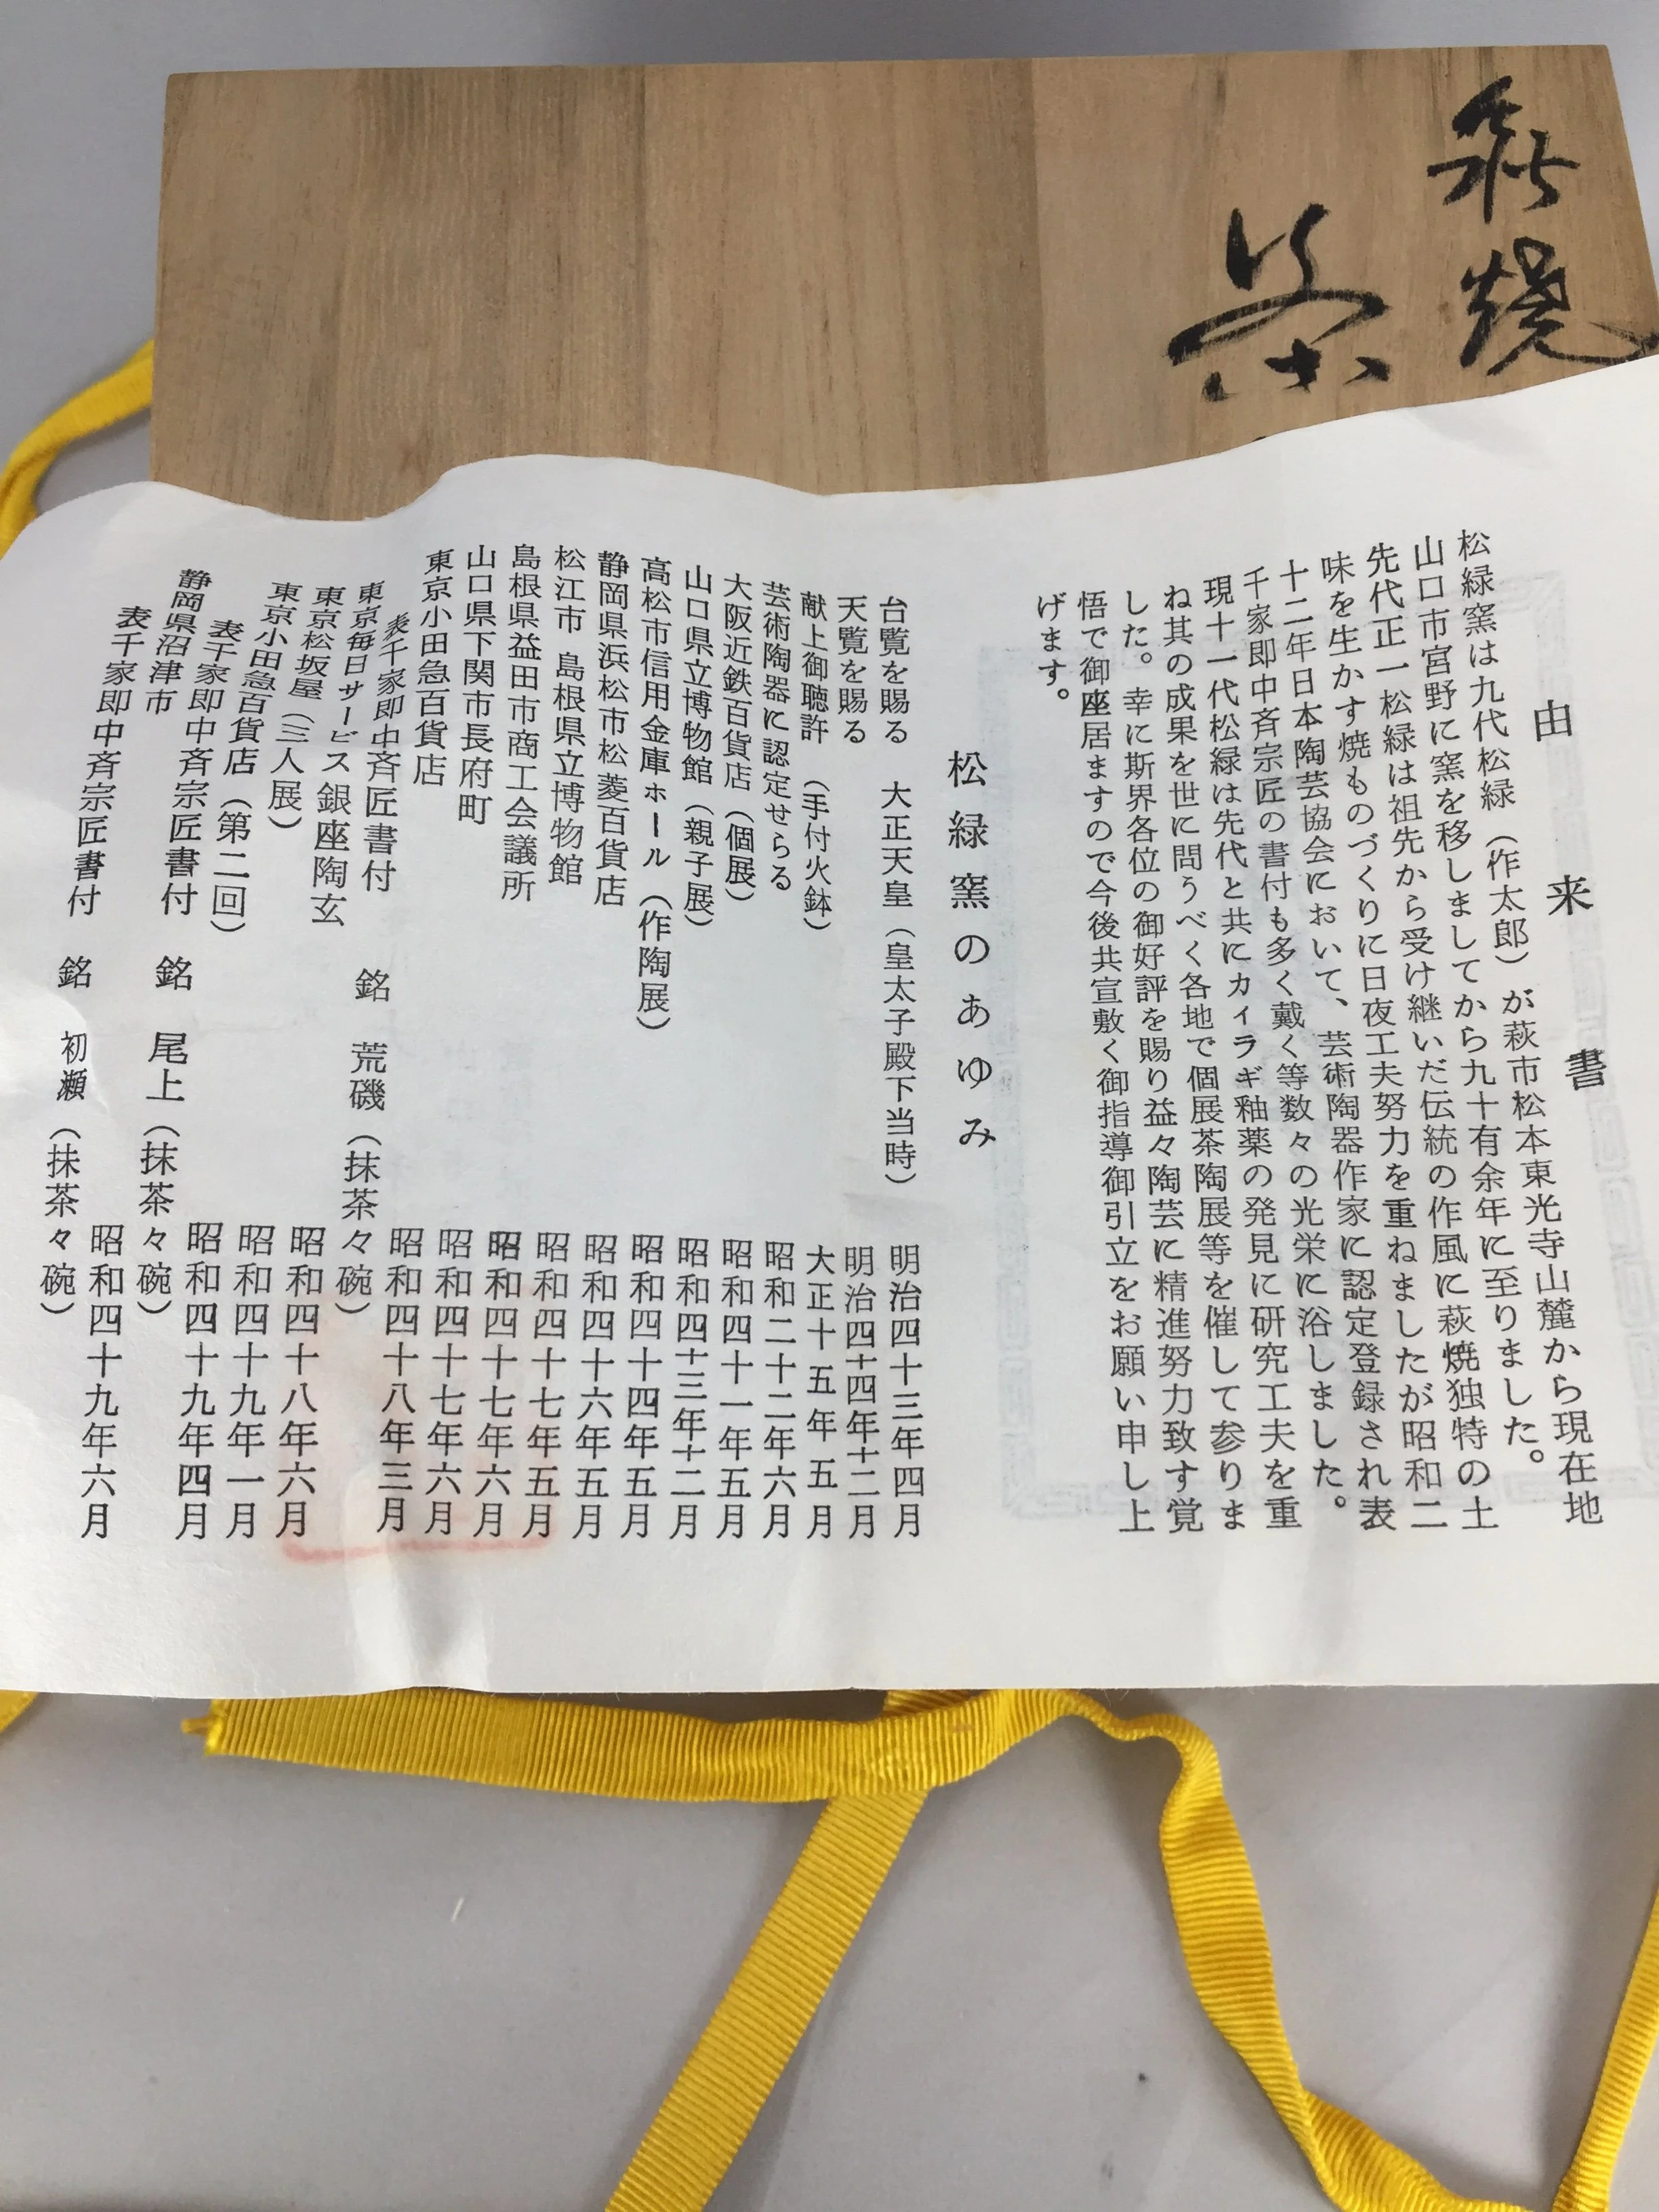 萩焼
茶
由来書
松緑窯は九代松緑(作太郎)が萩市松本東光寺山麓から現在地
山口市宮野に窯を移しましてから九十有余年に至りました。
先代正一松緑は祖先から受け継いだ伝統の作風に萩焼独特の土
味を生かす焼ものづくりに日夜工夫努力を重ねましたが昭和二
十二年日本陶芸協会において、芸術陶器作家に認定登録され表
千家即中斉宗匠の書付も多く戴く等数々の光栄に浴しました。
現十一代松緑は先代と共にカイラギ釉薬の発見に研究工夫を重
ね其の成果を世に問うべく各地で個展茶陶展等を催して参りま
した。幸に斯界各位の御好評を賜り益々陶芸に精進努力致す覚
悟で御座居ますので今後共宣敷く御指導御引立をお願い申し上
げます。
松緑窯のあゆみ
台覧を賜る 大正天皇(皇太子殿下当時) 明治四十三年四月
天覧を賜る 明治四十四年十二月
献上御聴許 (手付火鉢) 大正十五年五月
芸術陶器に認定せらる 昭和二十二年六月
大阪近鉄百貨店(個展) 昭和四十一年五月
山口県立博物館(親子展) 昭和四十三年十二月
高松市信用金庫ホール(作陶展) 昭和四十四年五月
静岡県浜松市松菱百貨店 昭和四十六年五月
松江市 島根県立博物館 昭和四十七年五月
島根県益田市商工会議所 昭和四十七年六月
山口県下関市長府町 昭和四十七年六月
東京小田急百貨店 昭和四十八年三月
表千家即中斉匠書付 銘 荒磯(抹茶々碗)
東京毎日サービス銀座陶玄 昭和四十八年六月
東京松坂屋(三人展) 昭和四十九年一月
東京小田急百貨店(第二回) 昭和四十九年四月
表千家即中斉宗匠書付 銘 尾上(抹茶々碗)
静岡県沼津市 昭和四十九年六月
表千家即中斉宗匠書付 銘 初瀬(抹茶々碗)